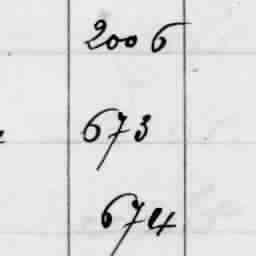 2006
673
674